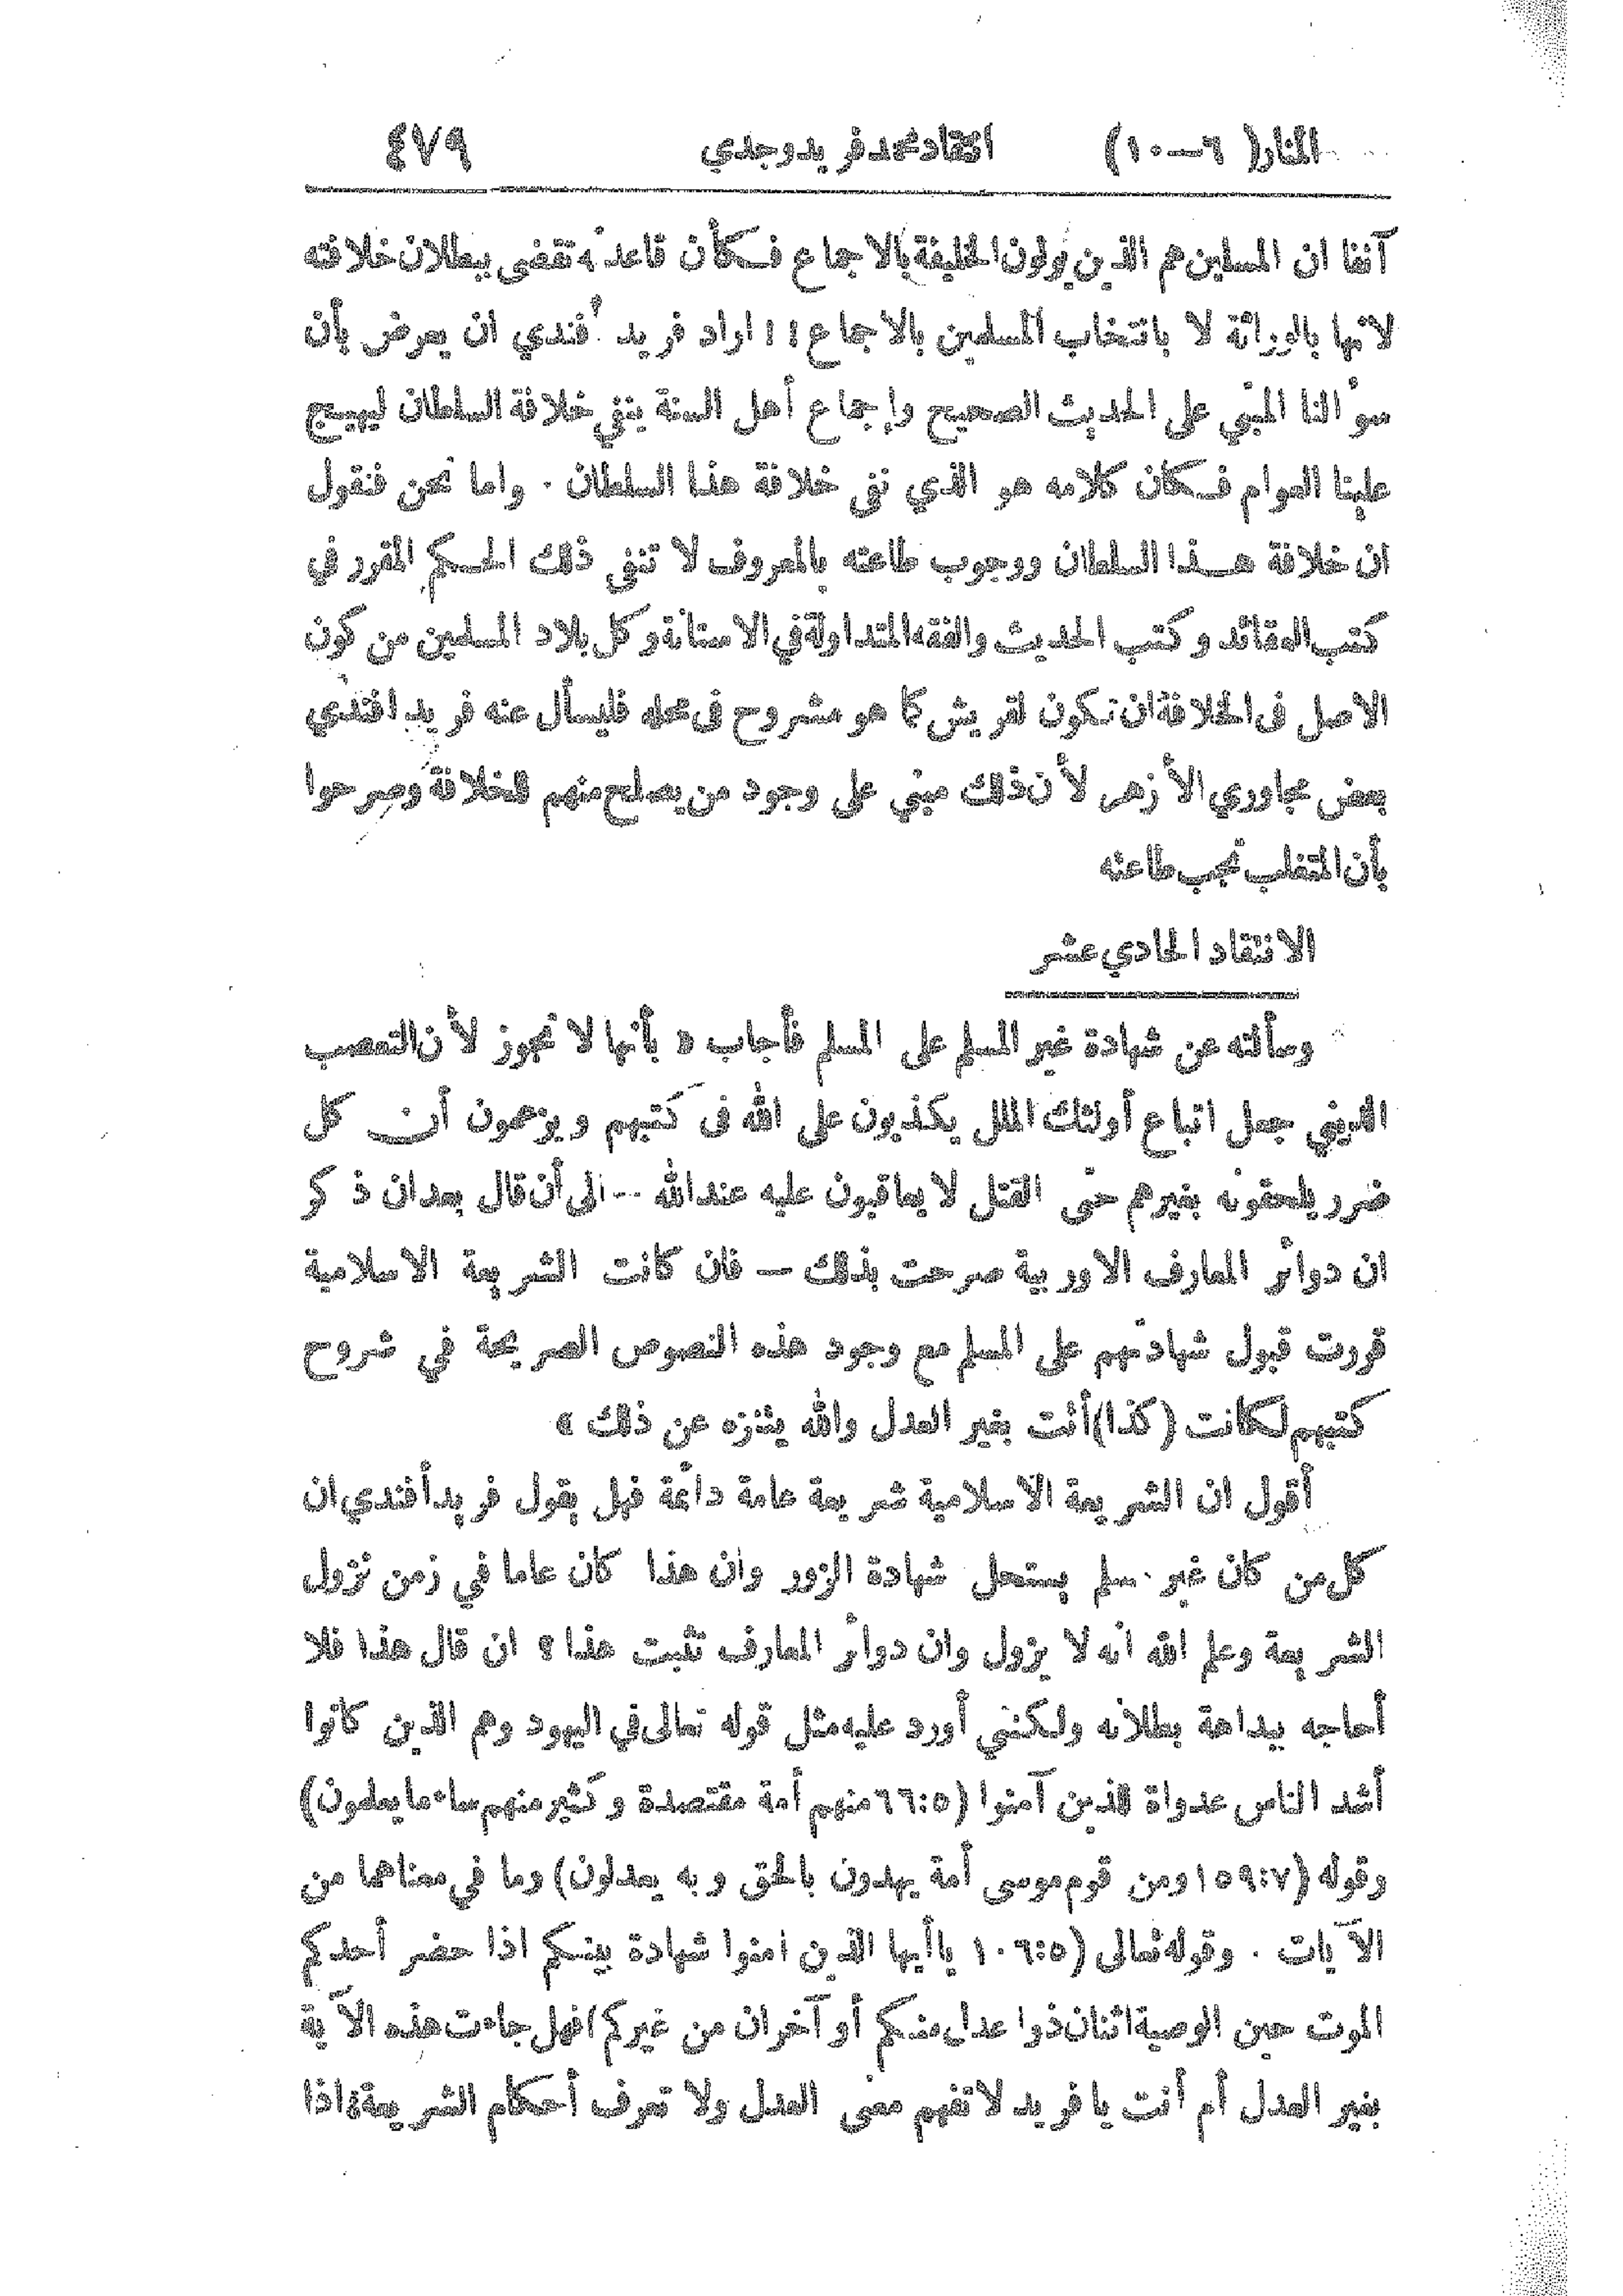 المنار (٦—١٠) انتقاد محمد فريد وجدي ٤٧٩
آنفا ان المسلمين هم الذين يولون الخليفة بالاجماع فكأن قاعدته تقضي ببطلان خلافته
لانها بالوراثة لا بانتخاب المسلمين بالاجماع ؛ ؛ اراد فريد أفندي ان يعرض بأن
سؤالنا المبني على الحديث الصحيح وإجماع أهل السنة ينفي خلافة السلطان ليهيج
علينا العوام فكان كلامه هو الذي نفى خلافة هذا السلطان . واما نحن فنقول
ان خلافة هذا السلطان ووجوب طاعته بالمعروف لا تنفي ذلك الحكم المقرر في
كتب العقائد وكتب الحديث والفقه المتداولة في الاستانة وكل بلاد المسلمين من كون
الاصل في الخلافة ان تكون لقريش كما هو مشروح في محله فليسأل عنه فريد افندي
بعض مجاوري الأزهر لأن ذلك مبني على وجود من يصلح منهم للخلافة وصرحوا
بأن المتغلب تجب طاعته
الانتقاد الحادي عشر
وسألته عن شهادة غير المسلم على المسلم فأجاب « بأنها لا تجوز لأن التعصب
الديني جعل اتباع أولئك الملل يكذبون على الله في كتبهم ويزعمون أن كل
ضرر يلحقونه بغيرهم حتى القتل لا يعاقبون عليه عند الله -- الى أن قال بعد ان ذكر
ان دوائر المعارف الاوربية صرحت بذلك — فان كانت الشريعة الاسلامية
قررت قبول شهادتهم على المسلم مع وجود هذه النصوص الصريحة في شروح
كتبهم لكانت (كذا) أتت بغير العدل والله يتنزه عن ذلك »
أقول ان الشريعة الاسلامية شريعة عامة دائمة فهل يقول فريد أفندي ان
كل من كان غير مسلم يستحل شهادة الزور وان هذا كان عاما في زمن نزول
الشريعة وعلم الله انه لا يزول وان دوائر المعارف تثبت هذا ؟ ان قال هذا فلا
أحاجه ببداهة بطلانه ولكنني أورد عليه مثل قوله تعالى في اليهود وهم الذين كانوا
أشد الناس عدواة للذين آمنوا (٦٦:٥ منهم أمة مقتصدة وكثير منهم ساء ما يعملون)
وقوله (١٥٩:٧ ومن قوم موسى أمة يهدون بالحق وبه يعدلون) وما في معناهما من
الآيات . وقوله تعالى (١٠٦:٥ ياأيها الذين امنوا شهادة بينكم اذا حضر أحدكم
الموت حين الوصية اثنان ذوا عدل منكم أو آخران من غيركم) فهل جاءت هذه الآية
بغير العدل أم أنت يا فريد لا تفهم معنى العدل ولا تعرف أحكام الشريعة ؟ اذا